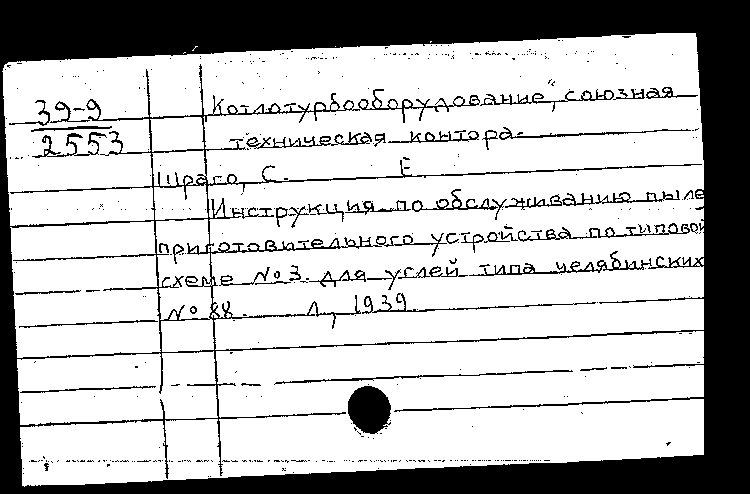 39-9
2553
Котлотурбооборудование", союзная
техническая контора.
Шраго, С. Е.
Инструкция по обслуживанию пыле
приготовительного устройства по типовой
схеме №3. для углей типа челябинских
№ 88. Л, 1939.